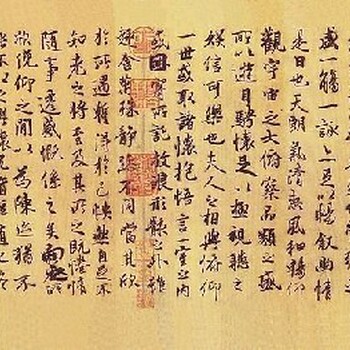 盛一觴一詠亦足以暢敘幽情
是日也天朗氣清惠風和暢仰
觀宇宙之大俯察品類之盛
所以遊目騁懷足以極視聽之
娛信可樂也夫人之相與俯仰
一世或取諸懷抱悟言一室之內
或因寄所託放浪形骸之外雖
趣舍萬殊靜躁不同當其欣
於所遇蹔得於己怏然自足不
知老之將至及其所之既惓情
隨事遷感慨係之矣向之所
欣俛仰之閒以為陳迹猶不